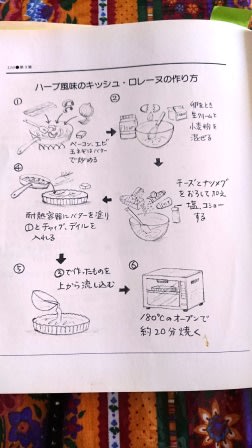 ハーブ風味のキッシュ・ロレーヌの作り方
①
ベーコン、エビ
玉ネギはバター
で炒める
②
卵をとき
生クリームと
小麦粉を
混ぜる
チーズとナツメグ
をおろして加え
塩、コショー
する
④
耐熱容器にバターを塗り
①とチャイブ、ディルを
入れる
⑤
③で作ったものを
上から流し込む
⑥
180℃のオーブンで
約20分焼く